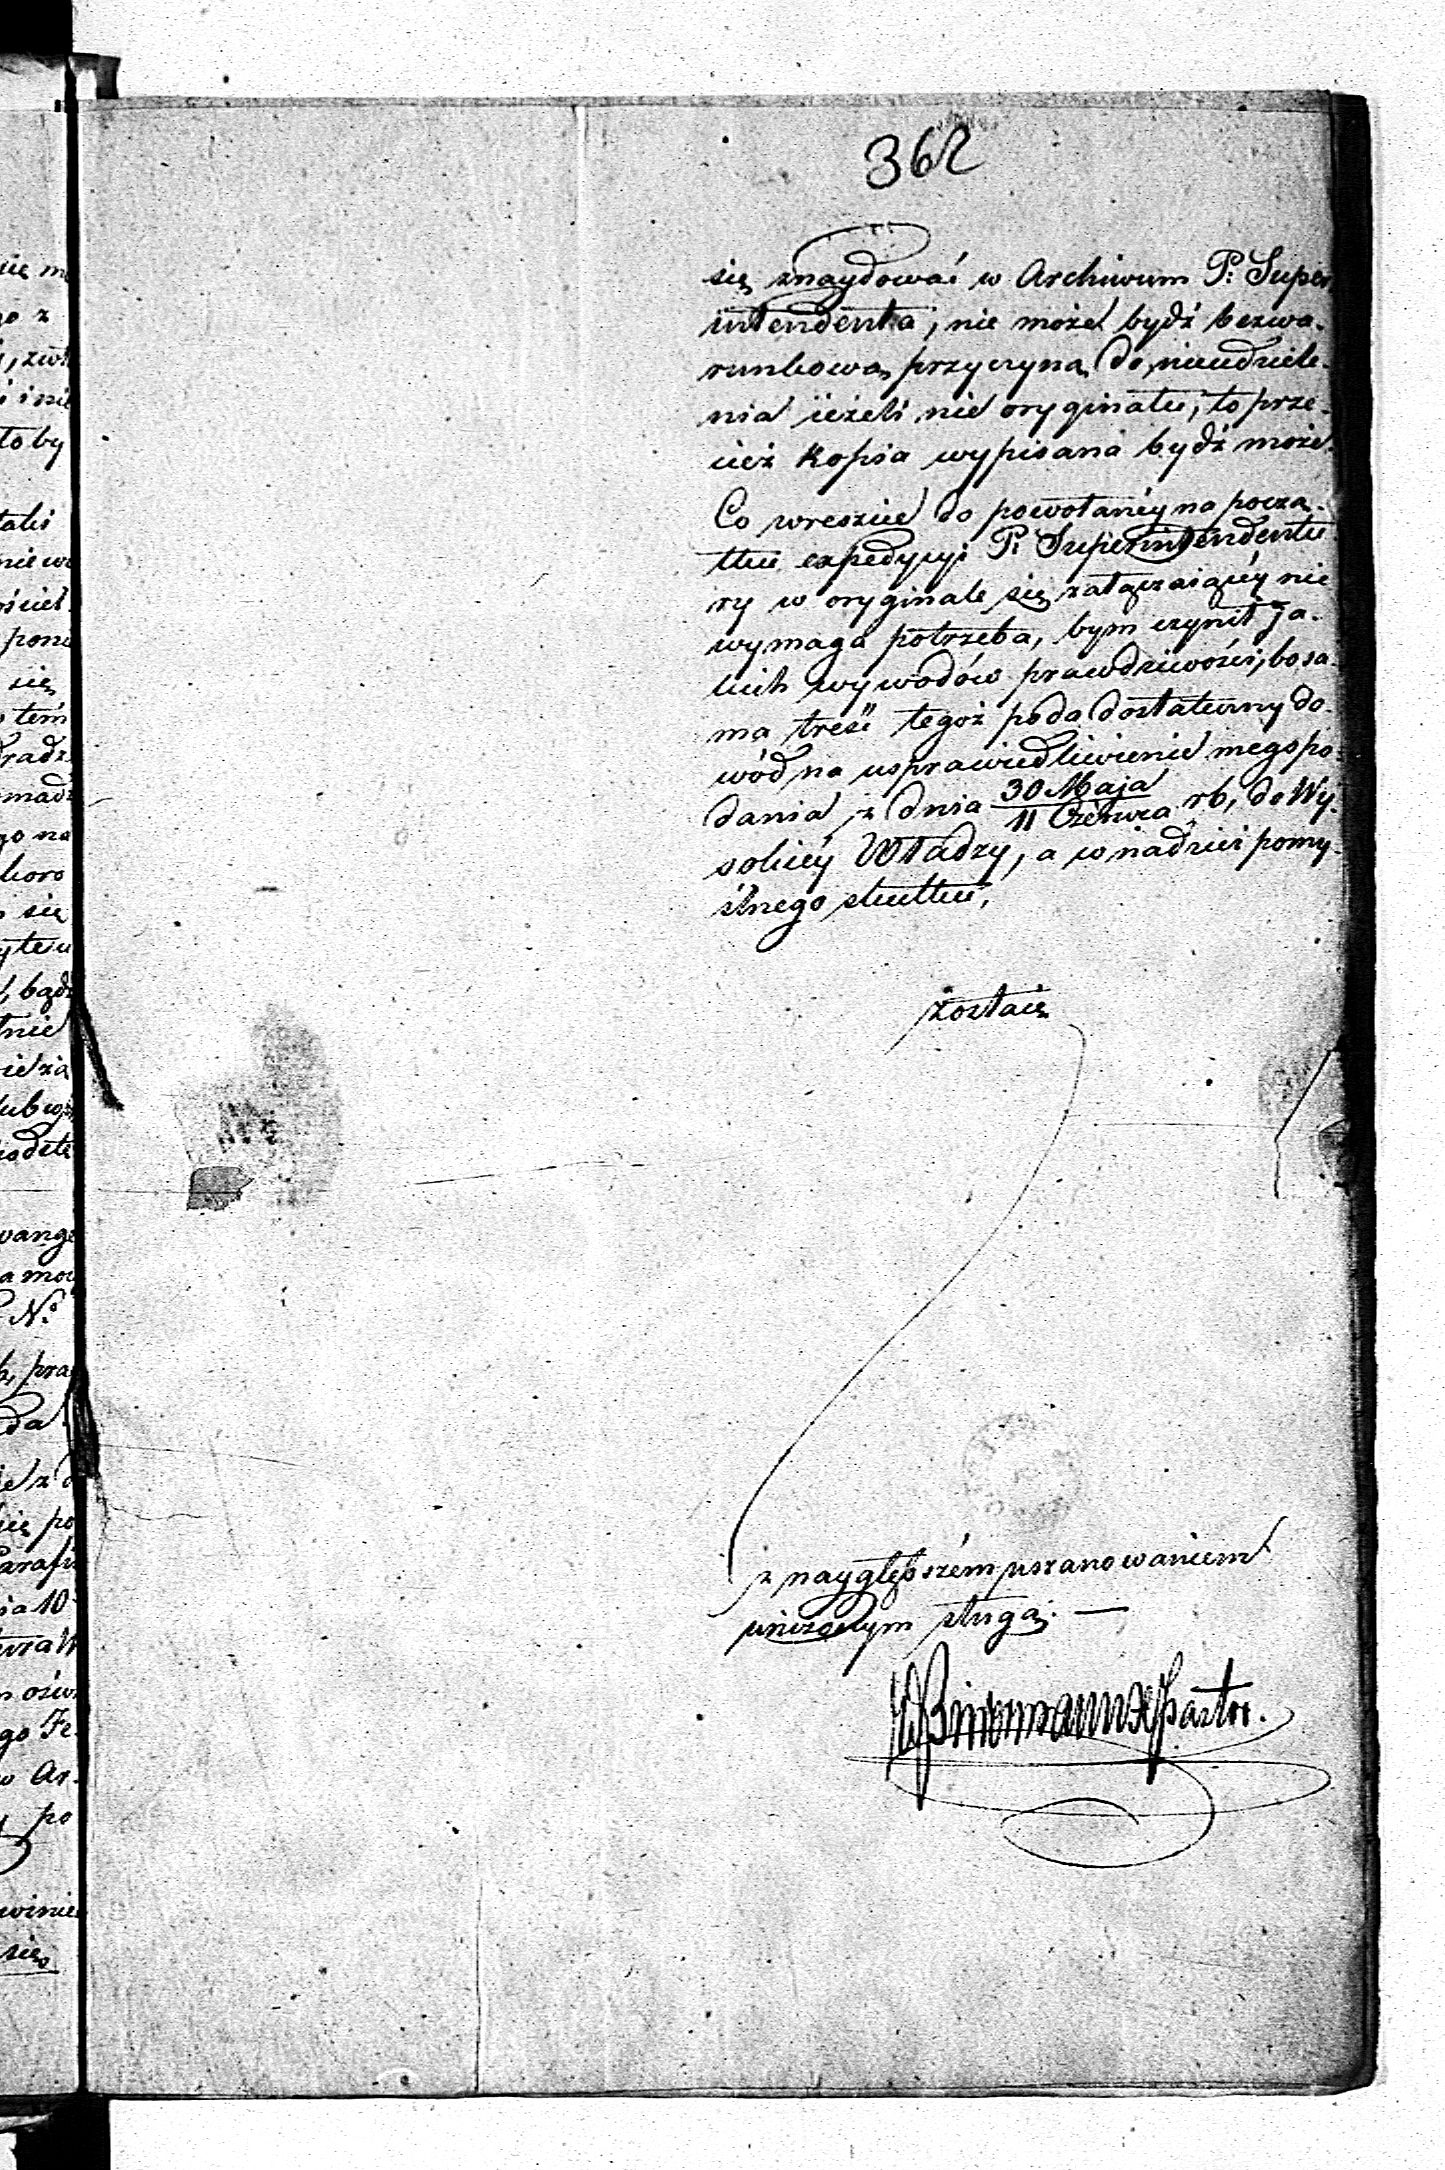 362
się znaydować w Archiwum P: Super
intendenta, nie może bydź bezwa-
runkową przyczyną do nieudziele-
nia ieżeli nie oryginału, to prze-
cież kopia wypisana bydź może.
Co wreszcie do powołanéy na począ-
tku expedycyi P: Superintendentu
ry w oryginale się załączaiącéy nie
wymaga potrzeba, bym czynił ja-
kich wywodów prawdziwości, bo sa-
ma treść tegoż poda dostateczny do-
wód na usprawiedliwienie mego po-
dania z dnia 30 Maja / 11 Czerwca rb, do Wy-
sokiéy Władzy, a w nadziei pomy-
ślnego skutku,
zostaię
z naygłębszém uszanowaniem
uniżonym sługą. —
Pastor.